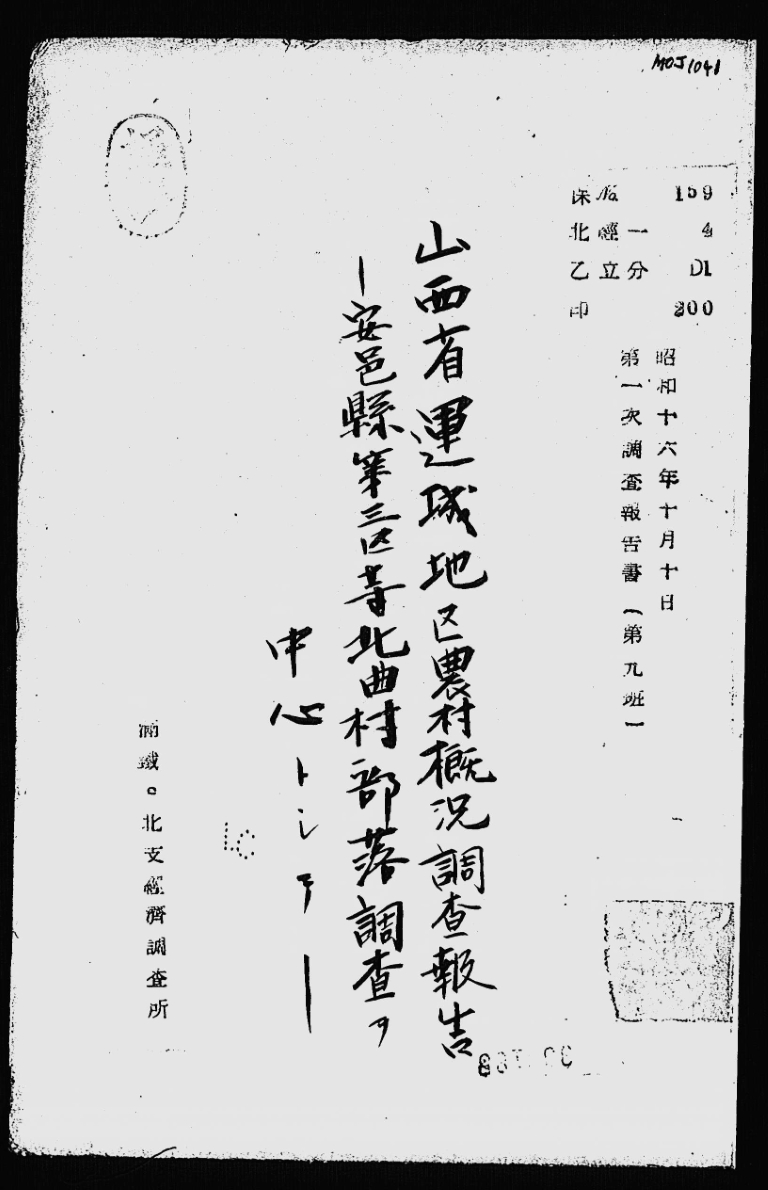 MOJ1041
保 № 159
北經一 4
乙立分 D1
印 200
昭和十六年十月十日
第一次調査報告書(第九班)
山西省運城地区農村概況調査報告
―安邑縣第三区寺北曲村部落調査ヲ
中心トシテ―
満鐵。北支經濟調査所
LC